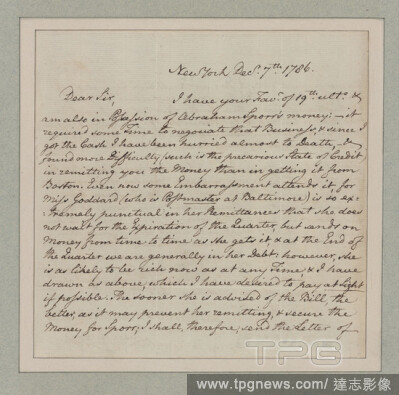 New York Decr. 7th. 1786.
Dear Sir, I have your Favr. of 19th. ulto. &
am also in Possession of Abraham Spoor's money; it
required some Time to negociate that Business, & since I
got the Cash I have been hurried almost to Death, &
found more Difficulty (such is the precarious State of Credit
in remitting you the Money than in getting it from
Boston. Even now some Embarrassment attends it, for
Miss Goddard, (who is Postmaster at Baltimore) is so ex-
tremely punctual in her Remittances that she does
not wait for the Expiration of the Quarter but sends on
Money from time to time as she gets it, & at the End of
the Quarter we are generally in her Debt; however, she
is as likely to be rich now as at any Time, & I have
drawn as above, which I have desired to pay at Sight
if possible. The sooner she is advised of the Bill, the
better, as it may prevent her remitting, & secure the
Money for Spoor; I shall, therefore, send the Letter of
TPG
www.tpgnews.com / 達志影像